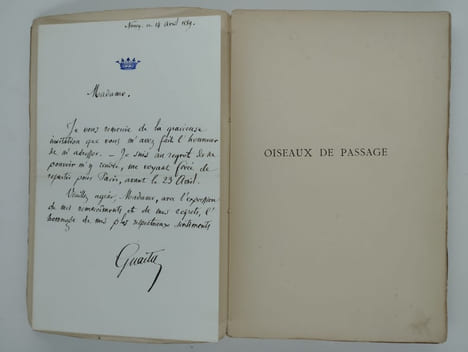 Nancy, ce 14 Avril 1889.
Madame,
Je vous remercie de la gracieuse
invitation que vous m'avez fait l'honneur
de m'adresser. – Je suis au regret de ne
pouvoir m'y rendre, me voyant forcé de
repartir pour Paris, avant le 23 Avril.
Veuillez agréer, Madame, avec l'expression
de mes remerciements et de mes regrets, l'
hommage de mes plus respectueux sentiments
Guaita
OISEAUX DE PASSAGE